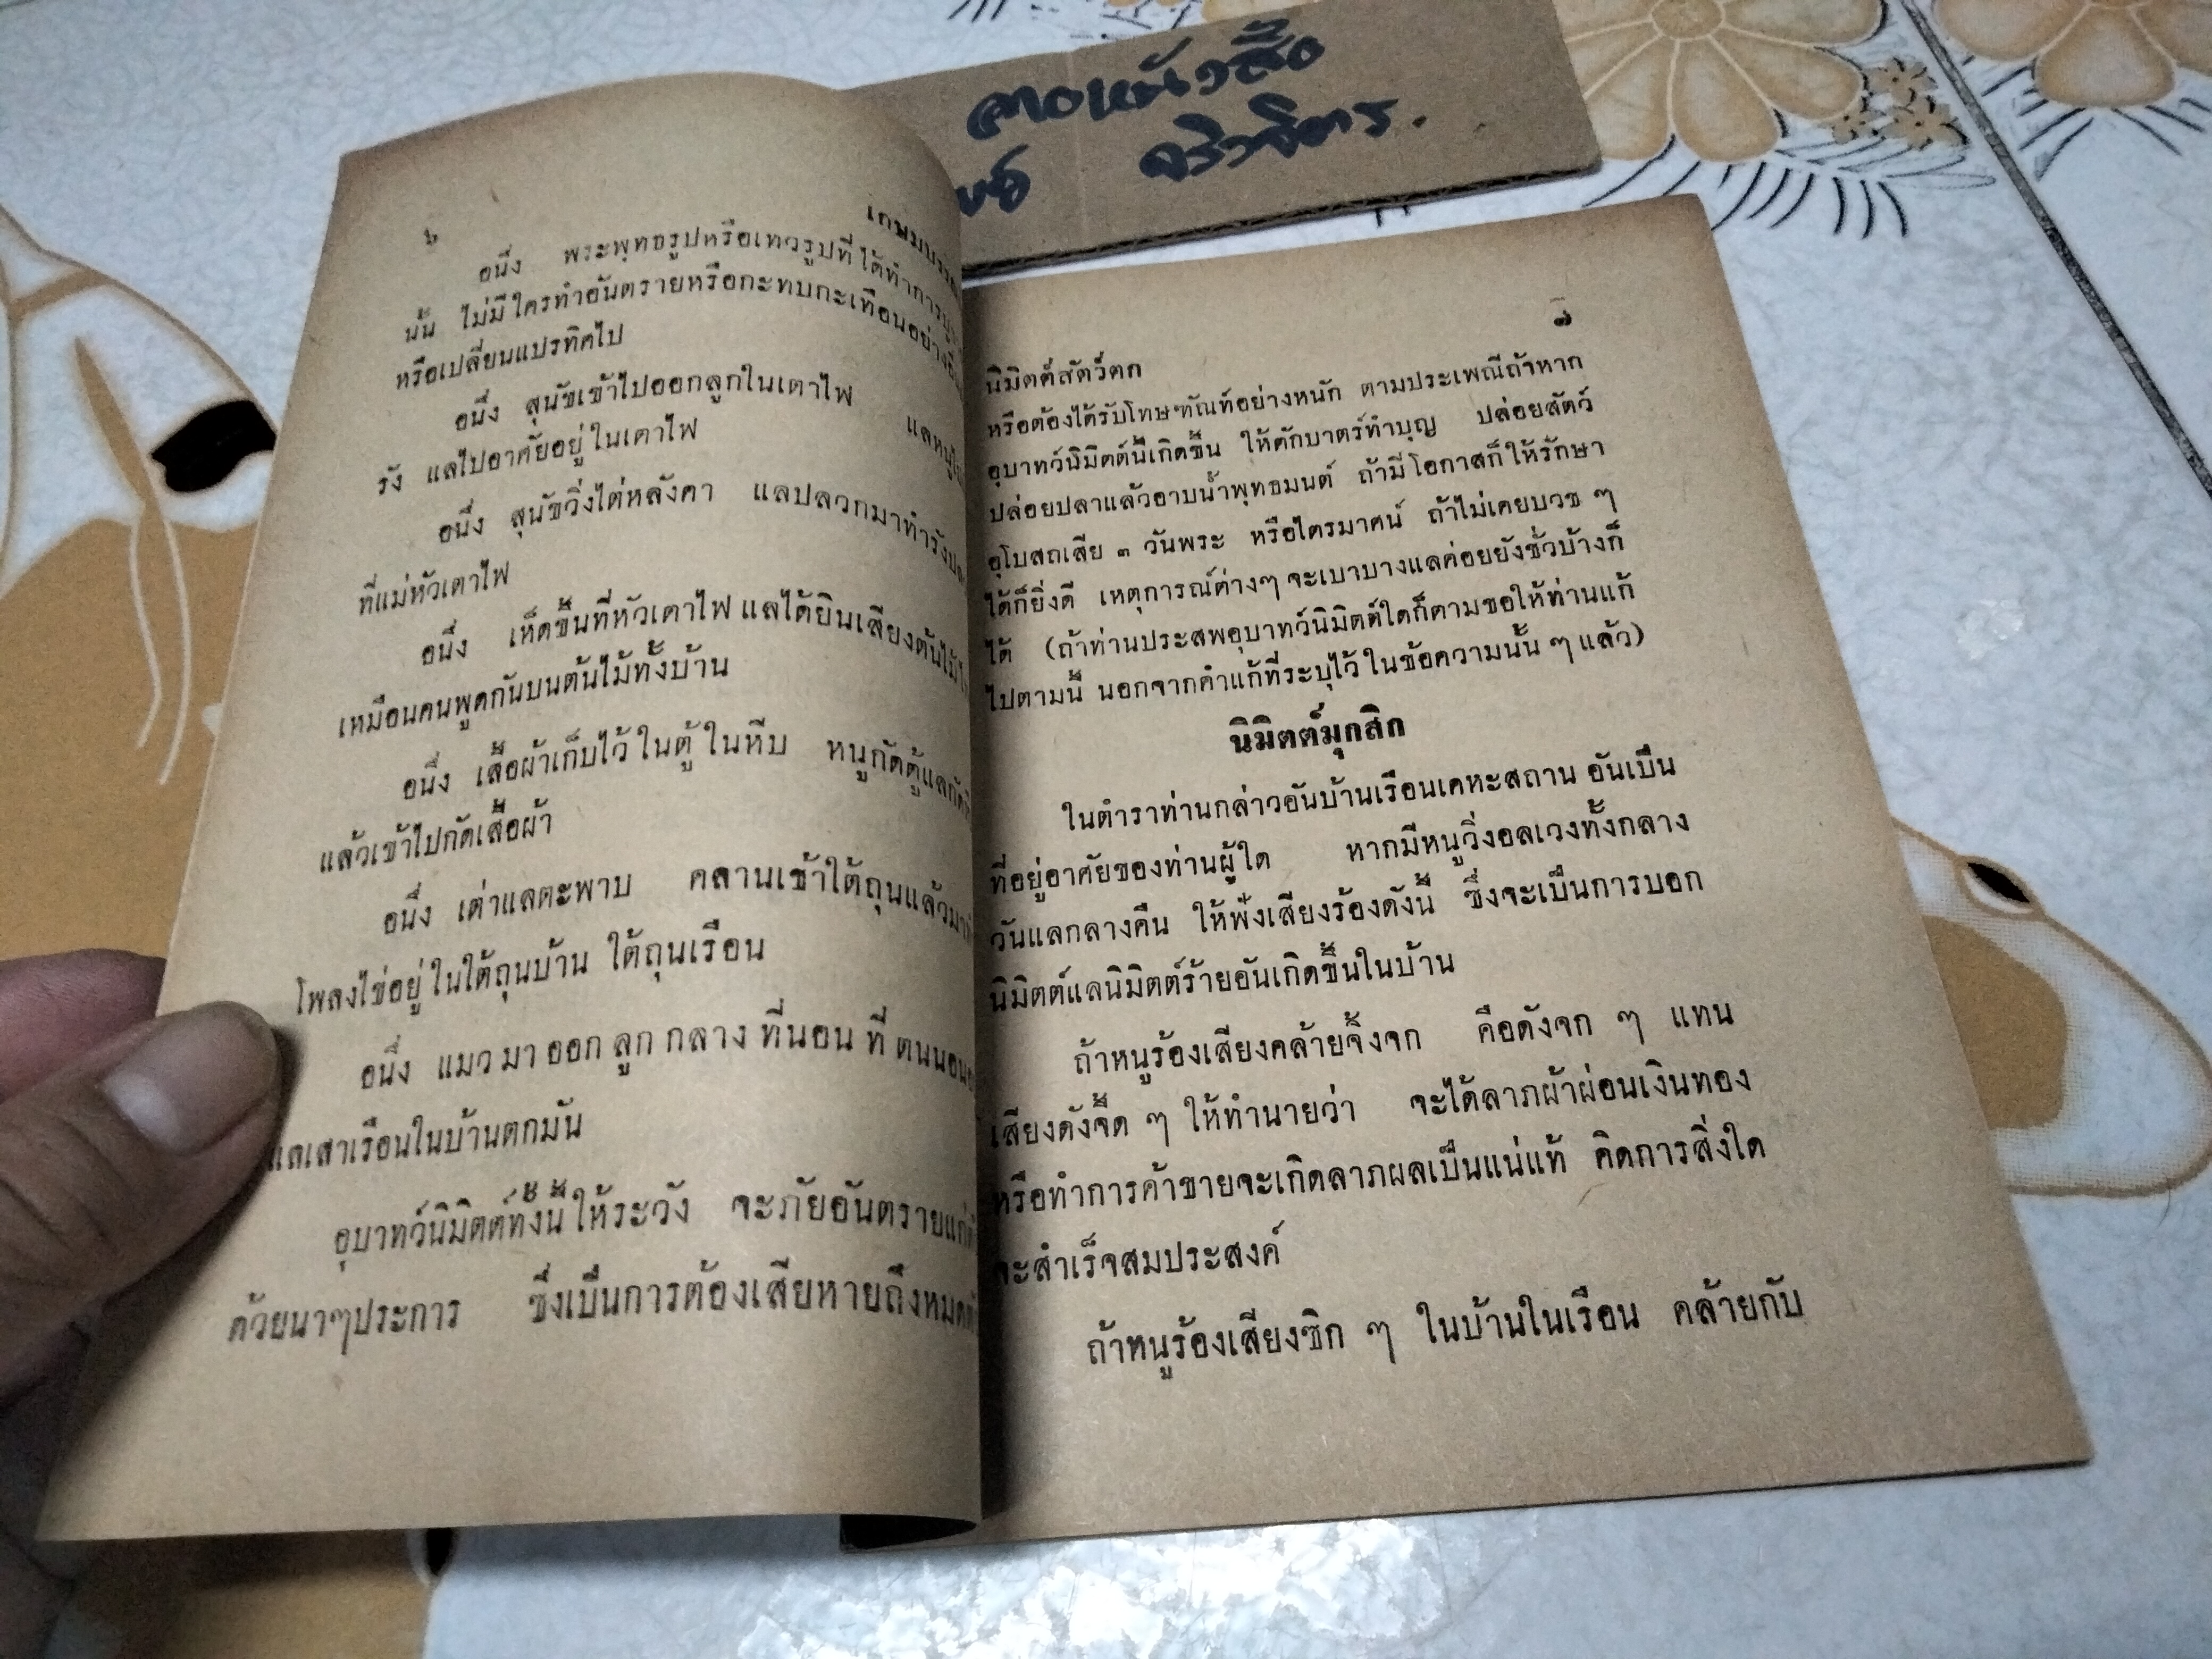 ลาดหนังสือ
จริวจิตร.
๖
เกษมบรร
อนึ่ง พระพุทธรูปหรือเทวรูปที่ได้ทำการบู
นั้น ไม่มีใครทำอันตรายหรือกะทบกะเทือนอย่าง
หรือเปลี่ยนแปรทิศไป
อนึ่ง สุนัขเข้าไปออกลูกในเตาไฟ แลหมู
รัง แลไปอาศัยอยู่ในเตาไฟ
อนึ่ง สุนัขวิ่งไต่หลังคา แลปลวกมาทำรัง
ที่แม่หัวเตาไฟ
อนึ่ง เห็ดขึ้นที่หัวเตาไฟ แลได้ยินเสียงต้นไม้
เหมือนคนพูดกันบนต้นไม้ทั้งบ้าน
อนึ่ง เสื้อผ้าเก็บไว้ในตู้ในหีบ หนูกัดตู้แลกัด
แล้วเข้าไปกัดเสื้อผ้า
อนึ่ง เต่าแลตะพาบ คลานเข้าใต้ถุนแล้วมา
โพลงไข่อยู่ในใต้ถุนบ้าน ใต้ถุนเรือน
อนึ่ง แมวมาออกลูกกลางที่นอนที่ตนนอน
แลเสาเรือนในบ้านตกมัน
อุบาทว์นิมิตต์ทั้งนี้ให้ระวัง จะภัยอันตรายแก่
ด้วยนาๆประการ ซึ่งเป็นการต้องเสียหายถึงหมด
นิมิตต์สัตว์ตก
๗
หรือต้องได้รับโทษฑัณท์อย่างหนัก ตามประเพณีถ้าหาก
อุบาทว์นิมิตต์นี้เกิดขึ้น ให้ตักบาตร์ทำบุญ ปล่อยสัตว์
ปล่อยปลาแล้วอาบน้ำพุทธมนต์ ถ้ามีโอกาสก็ให้รักษา
อุโบสถเสีย ๓ วันพระ หรือไตรมาศน์ ถ้าไม่เคยบวช ๆ
ได้ก็ยิ่งดี เหตุการณ์ต่างๆ จะเบาบางแลค่อยยังชั่วบ้างก็
ได้ (ถ้าท่านประสพอุบาทว์นิมิตต์ใดก็ตามขอให้ท่านแก้
ไปตามนี้ นอกจากคำแก้ที่ระบุไว้ในข้อความนั้น ๆ แล้ว)
นิมิตต์มุกสิก
ในตำราท่านกล่าวอันบ้านเรือนเคหะสถาน อันเป็น
ที่อยู่อาศัยของท่านผู้ใด หากมีหนูวิ่งอลเวงทั้งกลาง
วันแลกลางคืน ให้ฟังเสียงร้องดังนี้ ซึ่งจะเป็นการบอก
นิมิตต์แลนิมิตต์ร้ายอันเกิดขึ้นในบ้าน
ถ้าหนูร้องเสียงคล้ายจิ้งจก คือดังจก ๆ แทน
เสียงดังจี๊ด ๆ ให้ทำนายว่า จะได้ลาภผ้าผ่อนเงินทอง
หรือทำการค้าขายจะเกิดลาภผลเป็นแน่แท้ คิดการสิ่งใด
จะสำเร็จสมประสงค์
ถ้าหนูร้องเสียงซิก ๆ ในบ้านในเรือน คล้ายกับ